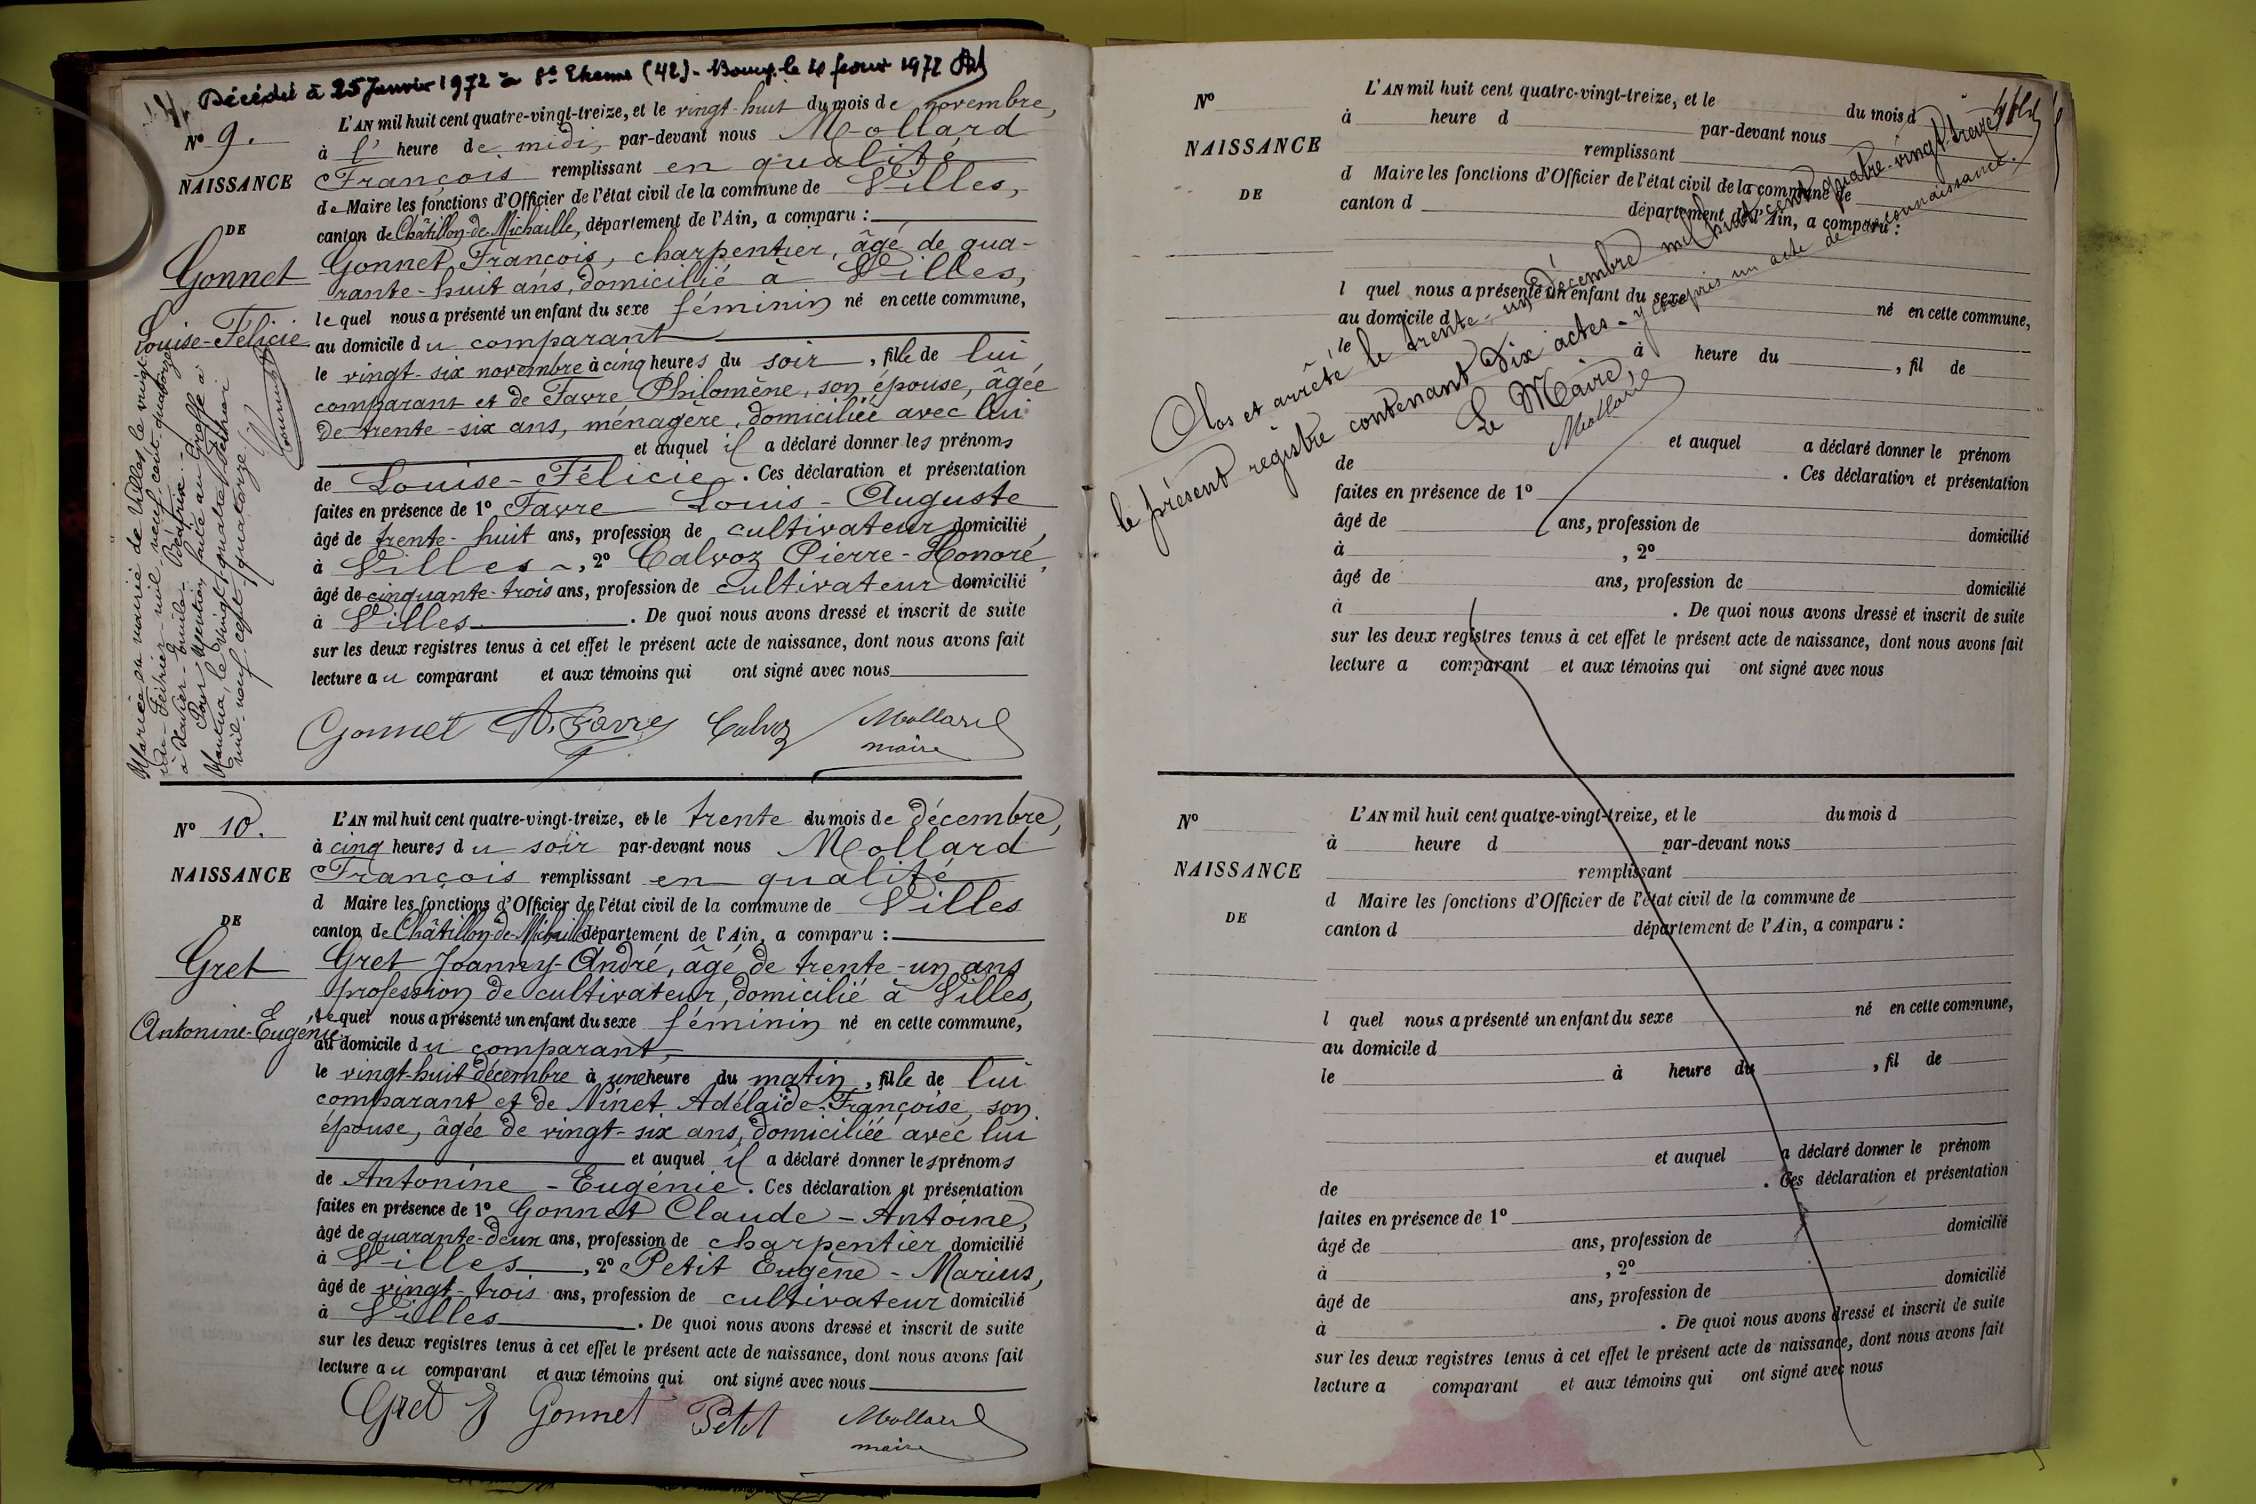 Décédée à 25 Janvier 1972 à St Etienne (42) - Bourg le 4 février 1972
L'AN mil huit cent quatre-vingt-treize, et le vingt-huit du mois de novembre,
No 9.
à l' heure de midi, par-devant nous Mollard
NAISSANCE
François remplissant en qualité
de Maire les fonctions d'Officier de l'état civil de la commune de Villes,
DE
canton de Châtillon-de-Michaille, département de l'Ain, a comparu :
Gonnet
Gonnet François, charpentier, âgé de qua-
rante-huit ans, domicilié à Villes,
Louise-Félicie
lequel nous a présenté un enfant du sexe féminin né en cette commune,
au domicile du comparant
le vingt-six novembre à cinq heures du soir, fille de lui
comparant et de Favre Philomène, son épouse, âgée
de trente-six ans, ménagère, domiciliée avec lui
et auquel il a déclaré donner les prénoms
de Louise-Félicie. Ces déclaration et présentation
faites en présence de 1o Favre Louis-Auguste
âgé de trente-huit ans, profession de cultivateur domicilié
à Villes, 2o Calvoz Pierre-Honoré,
âgé de cinquante-trois ans, profession de cultivateur domicilié
à Villes. De quoi nous avons dressé et inscrit de suite
sur les deux registres tenus à cet effet le présent acte de naissance, dont nous avons fait
lecture au comparant et aux témoins qui ont signé avec nous
Gonnet A. Favre Calvoz Mollard
maire
Mariée en mairie de Villes le vingt-
un Février mil neuf cent quatorze
à Xavier-Emile Béatrix.
Pour Mention faite au Greffe à
Nantua, le vingt-quatre Février
mil-neuf-cent-quatorze
No 10.
L'AN mil huit cent quatre-vingt-treize, et le trente du mois de décembre,
à cinq heures du soir par-devant nous Mollard
NAISSANCE
François remplissant en qualité
d Maire les fonctions d'Officier de l'état civil de la commune de Villes
DE
canton de Châtillon-de-Michaille département de l'Ain, a comparu :
Gret
Gret Joanny-André, âgé de trente-un ans
profession de cultivateur, domicilié à Villes,
Antonine-Eugénie
lequel nous a présenté un enfant du sexe féminin né en cette commune,
au domicile du comparant,
le vingt-huit décembre à une heure du matin, fille de lui
comparant et de Ninet Adélaïde-Françoise, son
épouse, âgée de vingt-six ans, domiciliée avec lui
et auquel il a déclaré donner les prénoms
de Antonine-Eugénie. Ces déclaration et présentation
faites en présence de 1o Gonnet Claude-Antoine,
âgé de quarante-deux ans, profession de charpentier domicilié
à Villes, 2o Petit Eugène-Marius,
âgé de vingt-trois ans, profession de cultivateur domicilié
à Villes. De quoi nous avons dressé et inscrit de suite
sur les deux registres tenus à cet effet le présent acte de naissance, dont nous avons fait
lecture au comparant et aux témoins qui ont signé avec nous
Gret J Gonnet Petit Mollard
maire
No
L'AN mil huit cent quatre-vingt-treize, et le du mois d
à heure d par-devant nous
NAISSANCE
remplissant
d Maire les fonctions d'Officier de l'état civil de la commune de
DE
canton d département de l'Ain, a comparu :
l quel nous a présenté un enfant du sexe né en cette commune,
au domicile d
le à heure du , fil de
et auquel a déclaré donner le prénom
de . Ces déclaration et présentation
faites en présence de 1o
âgé de ans, profession de domicilié
à , 2o
âgé de ans, profession de domicilié
à . De quoi nous avons dressé et inscrit de suite
sur les deux registres tenus à cet effet le présent acte de naissance, dont nous avons fait
lecture a comparant et aux témoins qui ont signé avec nous
Clos et arrêté le trente-un décembre mil huit cent quatre-vingt-treize
le présent registre contenant dix actes - y compris un acte de reconnaissance.
Le Maire,
Mollard
No
L'AN mil huit cent quatre-vingt-treize, et le du mois d
à heure d par-devant nous
NAISSANCE
remplissant
d Maire les fonctions d'Officier de l'état civil de la commune de
DE
canton d département de l'Ain, a comparu :
l quel nous a présenté un enfant du sexe né en cette commune,
au domicile d
le à heure du , fil de
et auquel a déclaré donner le prénom
de . Ces déclaration et présentation
faites en présence de 1o
âgé de ans, profession de domicilié
à , 2o
âgé de ans, profession de domicilié
à . De quoi nous avons dressé et inscrit de suite
sur les deux registres tenus à cet effet le présent acte de naissance, dont nous avons fait
lecture a comparant et aux témoins qui ont signé avec nous